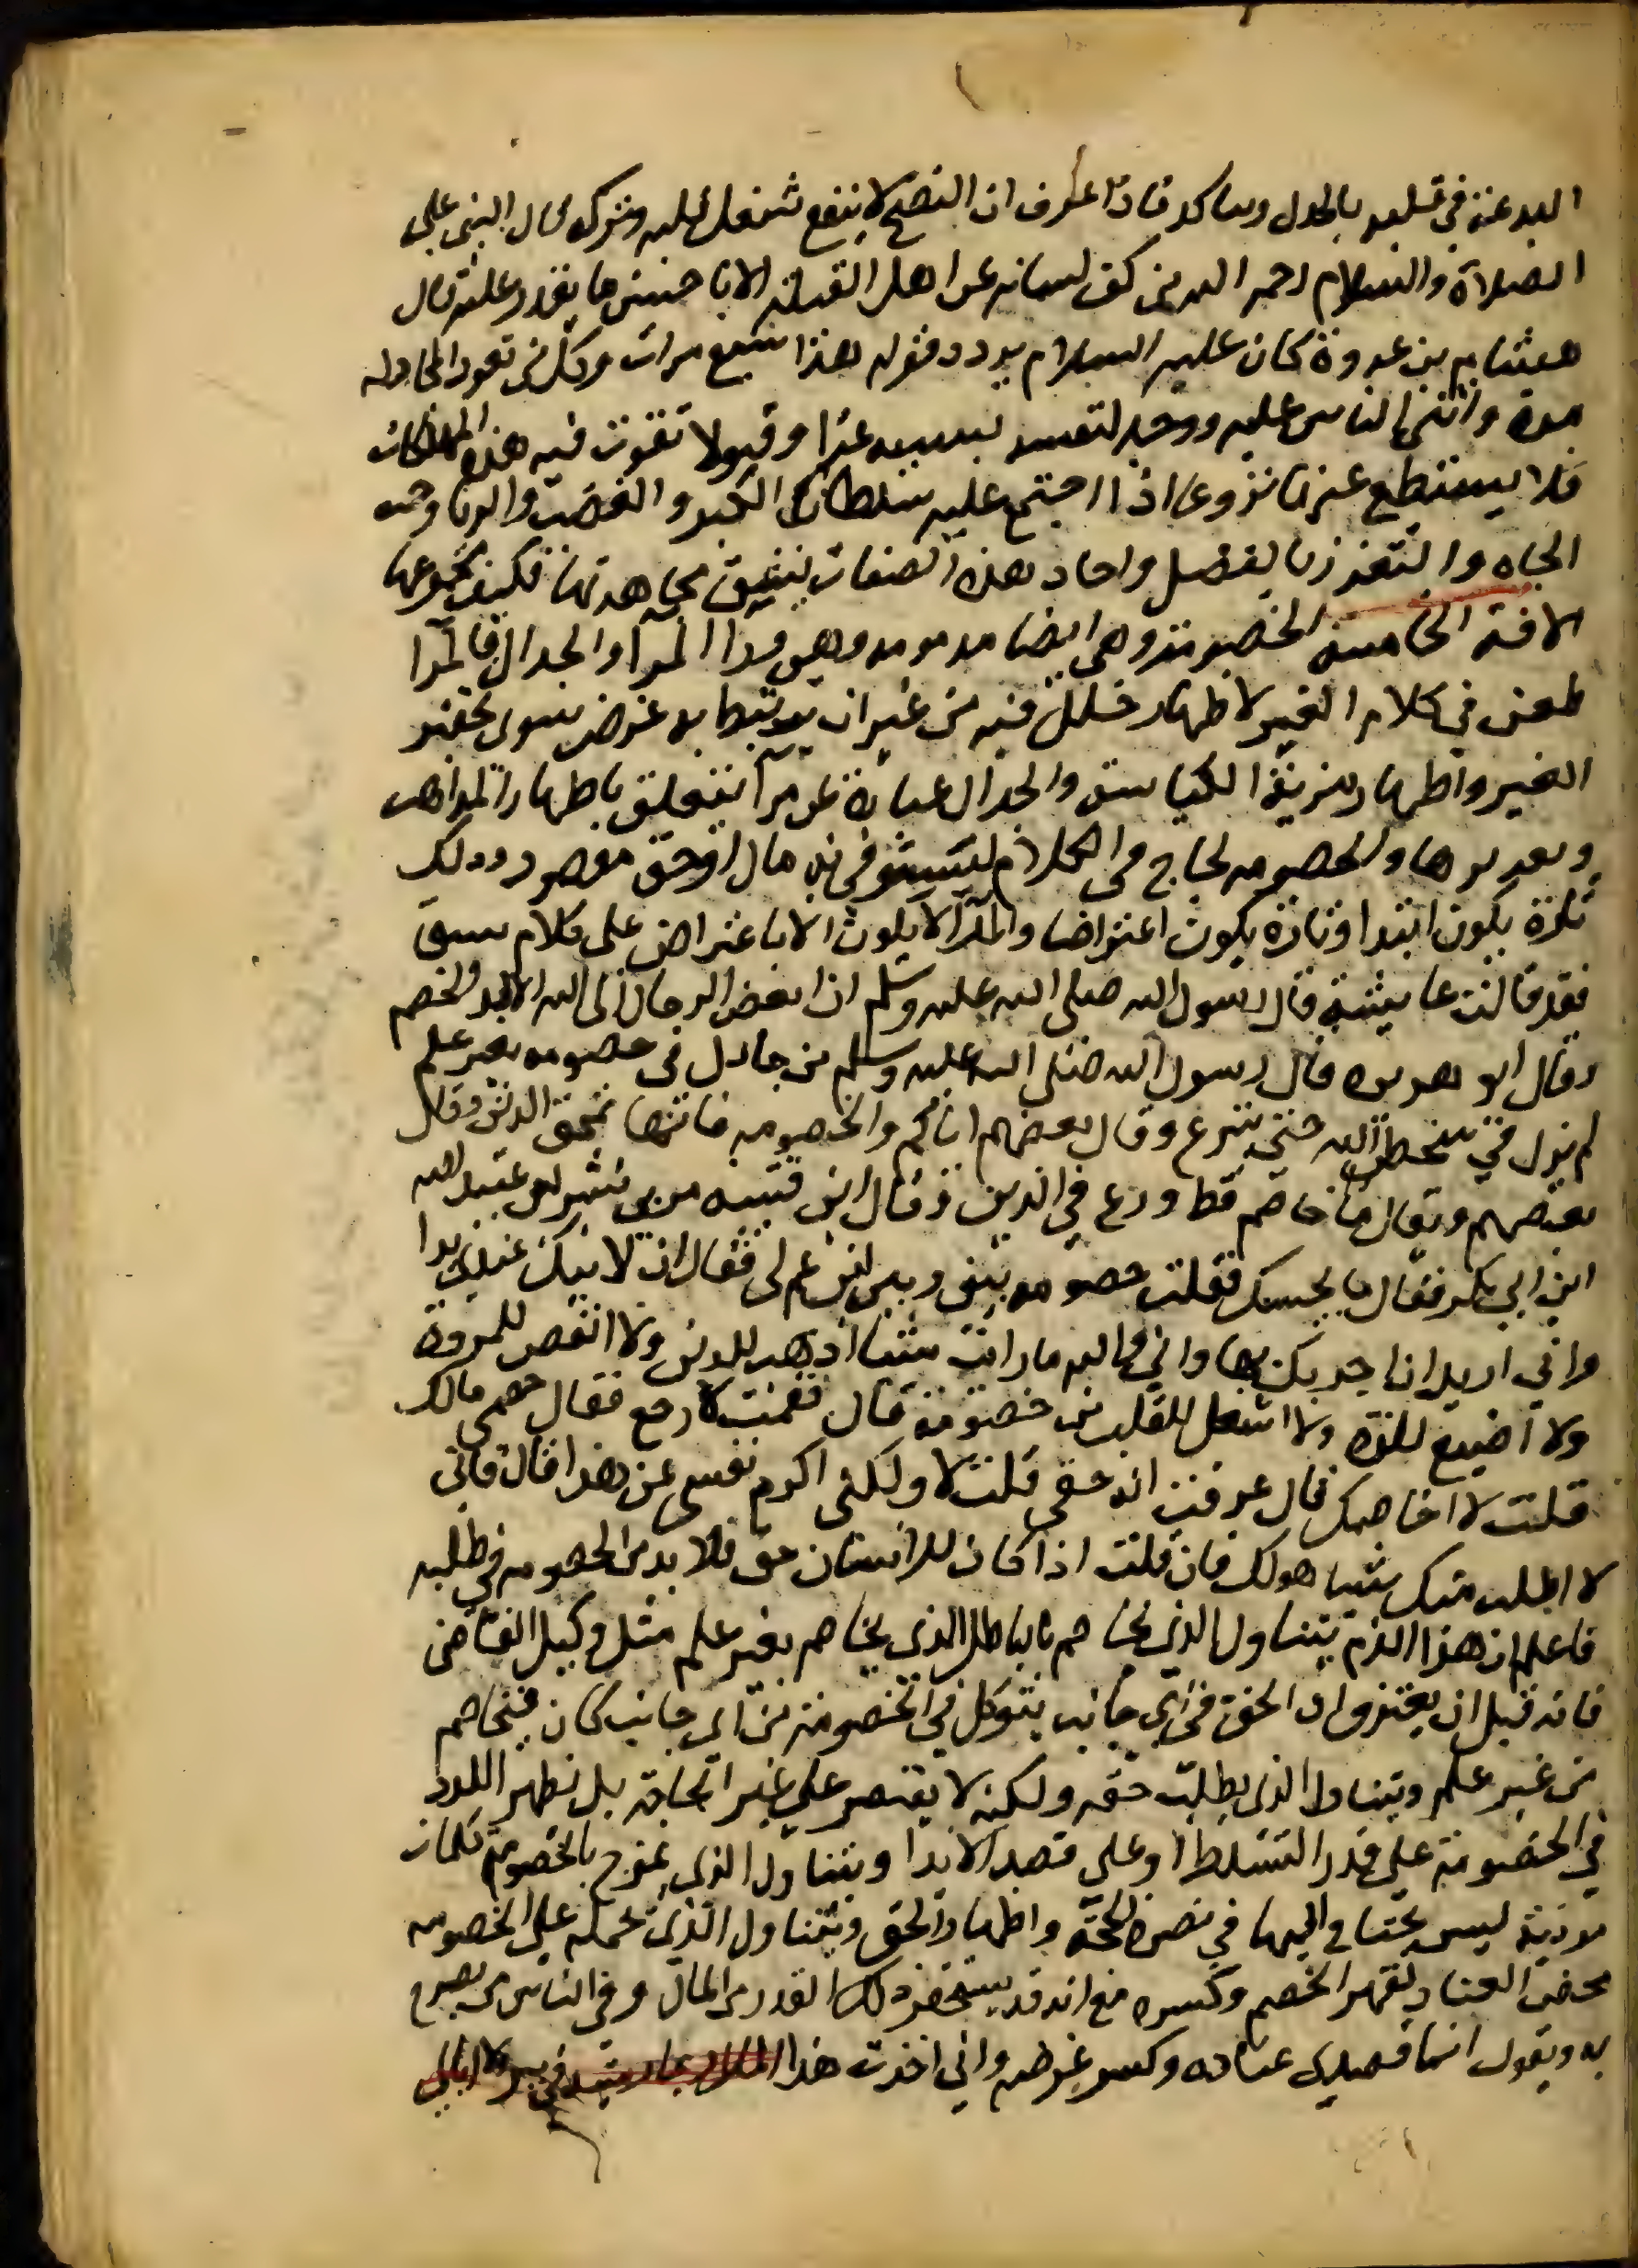 البدعة في قلبه بالجدل وتتاكد فاذا عرف ان النصح لا ينفع شغل قلبه وترك قال النبي عليه
الصلاة والسلام رحم الله من كف لسانه عن اهل القبلة الا باحسن ما يقدر عليه قال
هشام بن عروة كان عليه السلام يردد قوله هذا سبع مرات وكل من تعود المجادله
مدة واثنى الناس عليه ووجد لنفسه بسببه عزا وقبولا تقوت فيه هذه المهلكات
فلا يستطع عنها نزوعا اذا اجتمع عليه سلطان الكبر والغضب والريا وحب
الجاه والتعزز بالفضل واحاد هذه الصفات يشق مجاهدتها فكيف بمجموعها
الافة الخامسة الخصومة وهي ايضا مذمومه وهي ورا المرا والجدال فالمرا
طعن في كلام الغير لاظهار خلل فيه من غير ان يرتبط به غرض سوى تحقير
الغير واظهار مزية الكياسة والجدال عبارة عن مرا يتعلق باظهار المذاهب
وتقريرها والخصومه لجاج في الكلام ليستوفي به مال او حق مقصود وذلك
تارة يكون ابتدا وتارة يكون اعتراضا والمرا لا يكون الا باعتراض على كلام سبق
فقد قالت عايشة قال رسول الله صلى الله عليه وسلم ان ابغض الرجال الى الله الالد الخصم
وقال ابو هريره قال رسول الله صلى الله عليه وسلم من جادل في خصومه بغير علم
لم يزل في سخط الله حتى ينزع وقال بعضهم اياكم والخصومه فانها تمحق الدين وقال
بعضهم ويقال ما خاصم قط ورع في الدين وقال ابن قتيبه مر بي بشر بن عبد الله
ابن ابي بكر فقال ما يجلسك فقلت خصومه بيني وبين ابن عم لي فقال ان لابيك عندي يدا
واني اريد ان اجزيك بها واني والله ما رايت شيئا اذهب للدين ولا انقص للمروة
ولا اضيع للذه ولا اشغل للقلب من خصومة قال فقمت لارجع فقال خصمي مالك
قلت لا اخاصمك قال عرفت انه حقي قلت لا ولكني اكرم نفسي عن هذا قال فاني
لا اطلب منك شيئا هو لك فان قلت اذا كان للانسان حق فلا بد من الخصومه في طلبه
فاعلم ان هذا الذم يتناول الذي يخاصم بالباطل الذي يخاصم بغير علم مثل وكيل القاضي
فانه قبل ان يعترف ان الحق في اي جانب يتوكل في الخصومة من اي جانب كان فيخاصم
من غير علم ويتناول الذي يطلب حقه ولكنه لا يقتصر على غير الحاجة بل يظهر اللدد
في الخصومة على قدر التسلط او على قصد الايذا ويتناول الذي يمزج بالخصومة كلمات
موذية ليس يحتاج اليها في نصرة الحجة واظهار الحق ويتناول الذي يحمله على الخصومه
محض العناد لقهر الخصم وكسره مع انه قد يستحقر ذلك القدر من المال وفي الناس من يصرح
به ويقول انما قصدي عناده وكسر غرضه واني اخذت هذا المال رميته في بير ولا ابالي